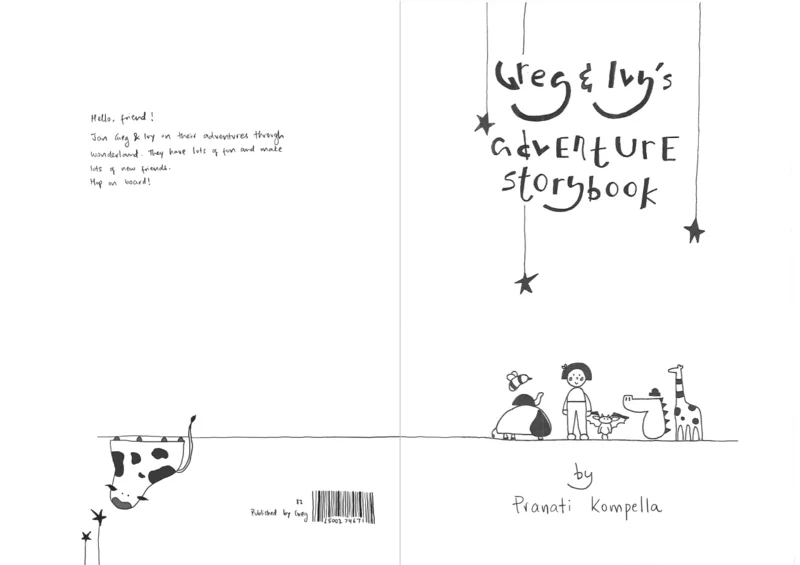 Hello, friend!
Join Greg & Ivy on their adventures through
wonderland. They have lots of fun and make
lots of new friends.
Hop on board!
Published by Greg
Greg & Ivy's
advEntUrE
storybook
by
Pranati Kompella